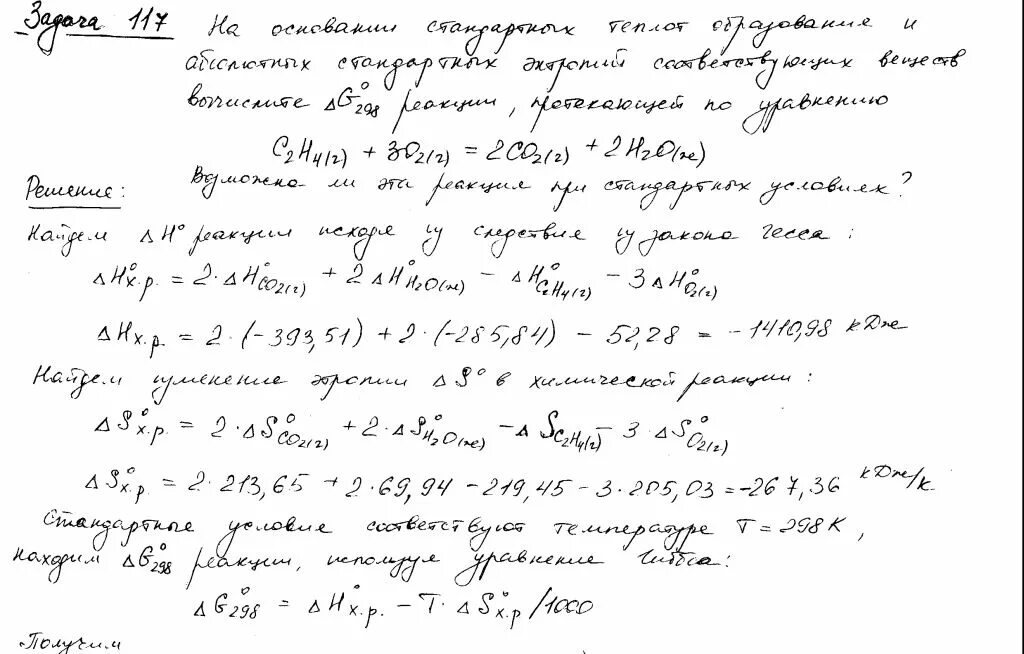 Задача 117 На основании стандартных теплот образования и
абсолютных стандартных энтропий соответствующих веществ
вычислите ΔG°298 реакции, протекающей по уравнению
C2H4(г) + 3O2(г) = 2CO2(г) + 2H2O(ж)
Возможна ли эта реакция при стандартных условиях?
Решение:
Найдем ΔH° реакции исходя из следствия из закона Гесса:
ΔH°х.р. = 2·ΔH°CO2(г) + 2ΔH°H2O(ж) - ΔH°C2H4(г) - 3ΔH°O2(г)
ΔHх.р. = 2·(-393,51) + 2·(-285,84) - 52,28 = -1410,98 кДж
Найдем изменение этропии ΔS° в химической реакции:
ΔS°х.р. = 2·ΔS°CO2(г) + 2·ΔS°H2O(ж) - ΔSC2H4(г) - 3·ΔS°O2(г)
ΔS°х.р. = 2·213,65 + 2·69,94 - 219,45 - 3·205,03 = -267,36 кДж/К
Стандартные условие соответствуют температуре T = 298К,
находим ΔG°298 реакции, используя уравнение Гиббса:
ΔG°298 = ΔH°х.р. - T·ΔS°х.р/1000
Получим